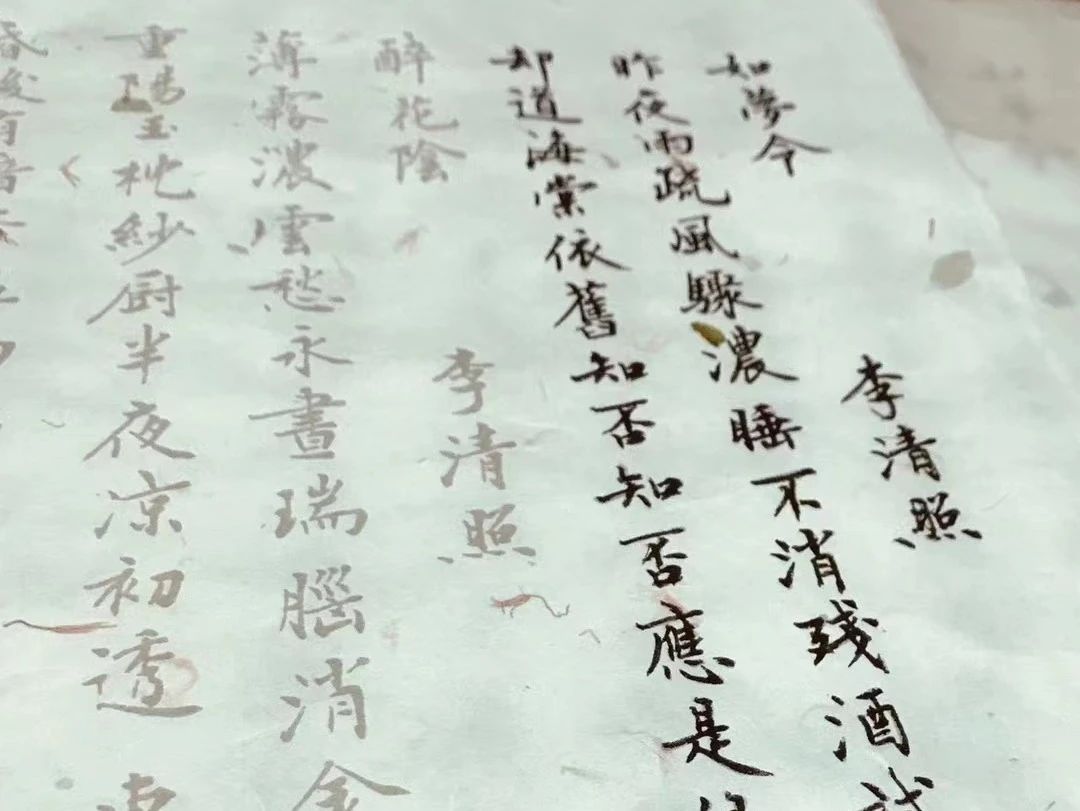 如夢令 李清照
昨夜雨疏風驟濃睡不消殘酒試
却道海棠依舊知否知否應是
醉花陰 李清照
薄霧濃雲愁永晝瑞腦消金
重陽玉枕紗厨半夜凉初透
昏後有暗香